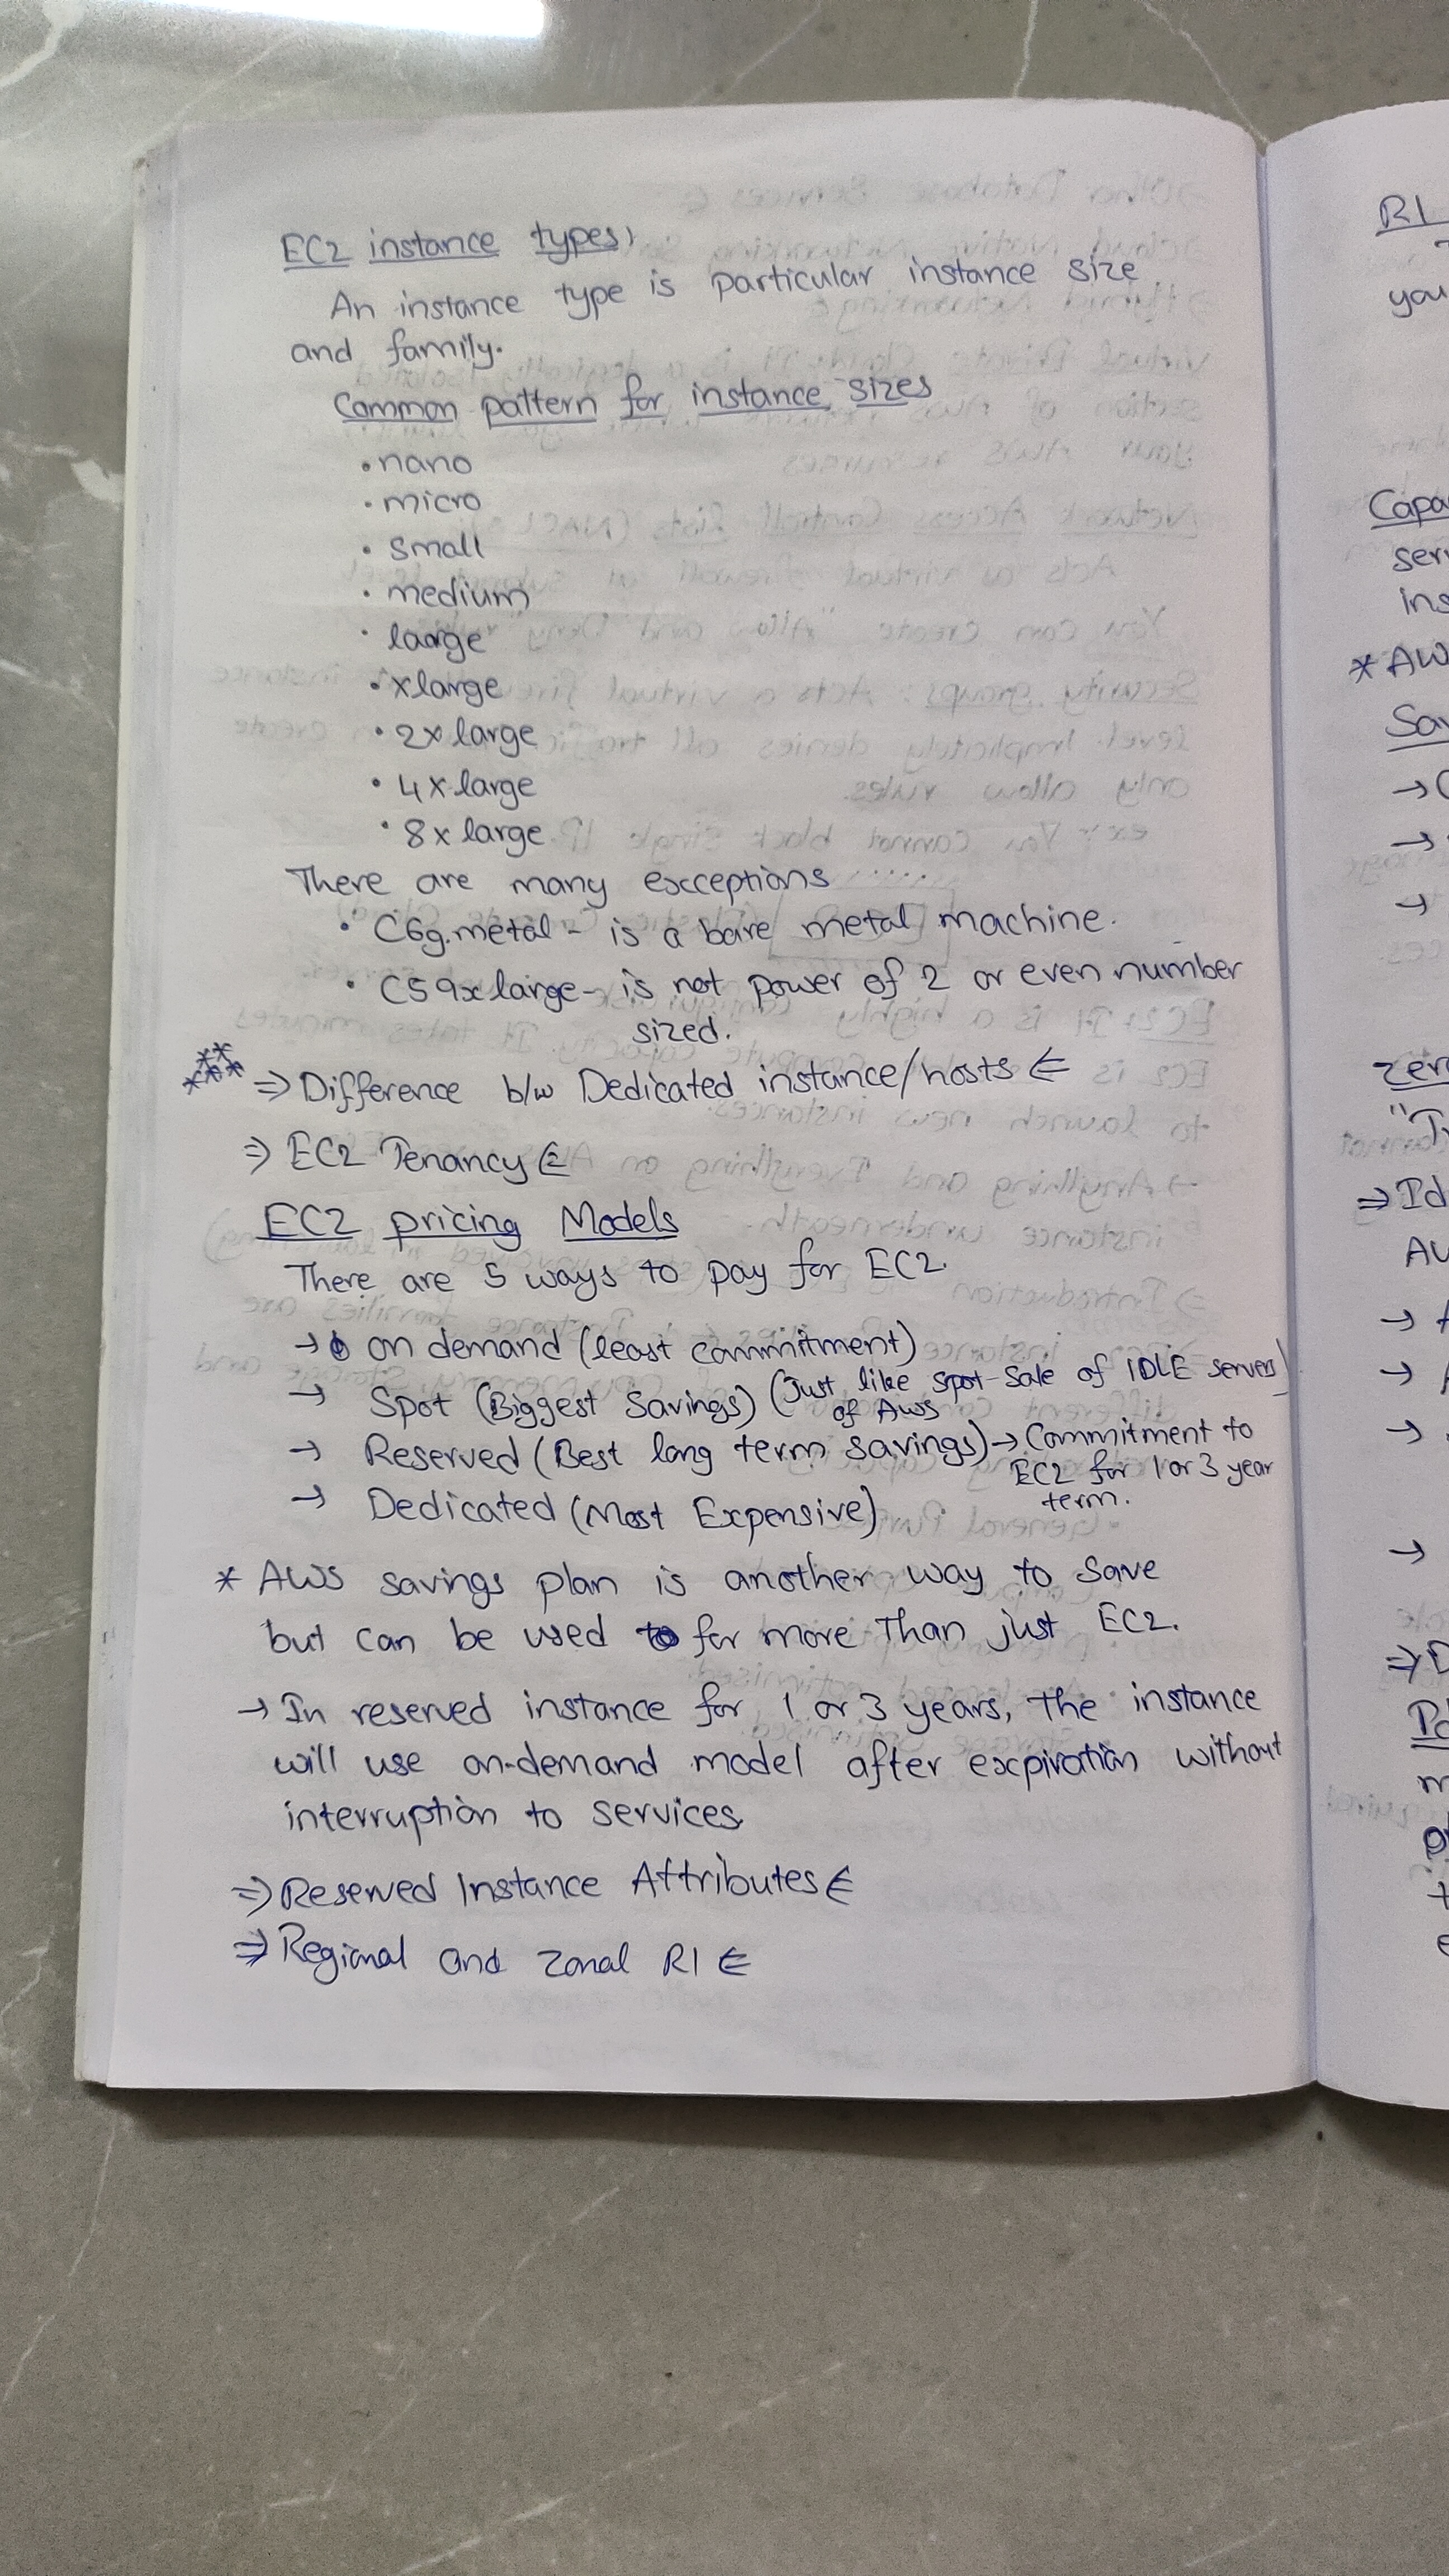 EC2 instance types:
An instance type is particular instance size
and family.
Common pattern for instance sizes
• nano
• micro
• small
• medium
• large
• xlarge
• 2xlarge
• 4xlarge
• 8xlarge
There are many exceptions
• C6g.metal - is a bare metal machine.
• C59xlarge - is not power of 2 or even number
sized.
***** ⇒ Difference b/w Dedicated instance/hosts ⋲
⇒ EC2 Tenancy ⋲
EC2 pricing Models
There are 5 ways to pay for EC2.
→ on demand (least commitment)
→ Spot (Biggest Savings) (Just like spot-sale of IDLE servers)
of AWS
→ Reserved (Best long term savings) → Commitment to
EC2 for 1 or 3 year
term.
→ Dedicated (Most Expensive)
* AWS savings plan is another way to save
but can be used for more than just EC2.
→ In reserved instance for 1 or 3 years, the instance
will use on-demand model after expiration without
interruption to services.
⇒ Reserved Instance Attributes ⋲
⇒ Regional and Zonal RI ⋲
RI
you
Capa
serv
ins
* AW
Sav
→
→
→
Zero
⇒ Id
AW
→
→
→
→
⇒ D